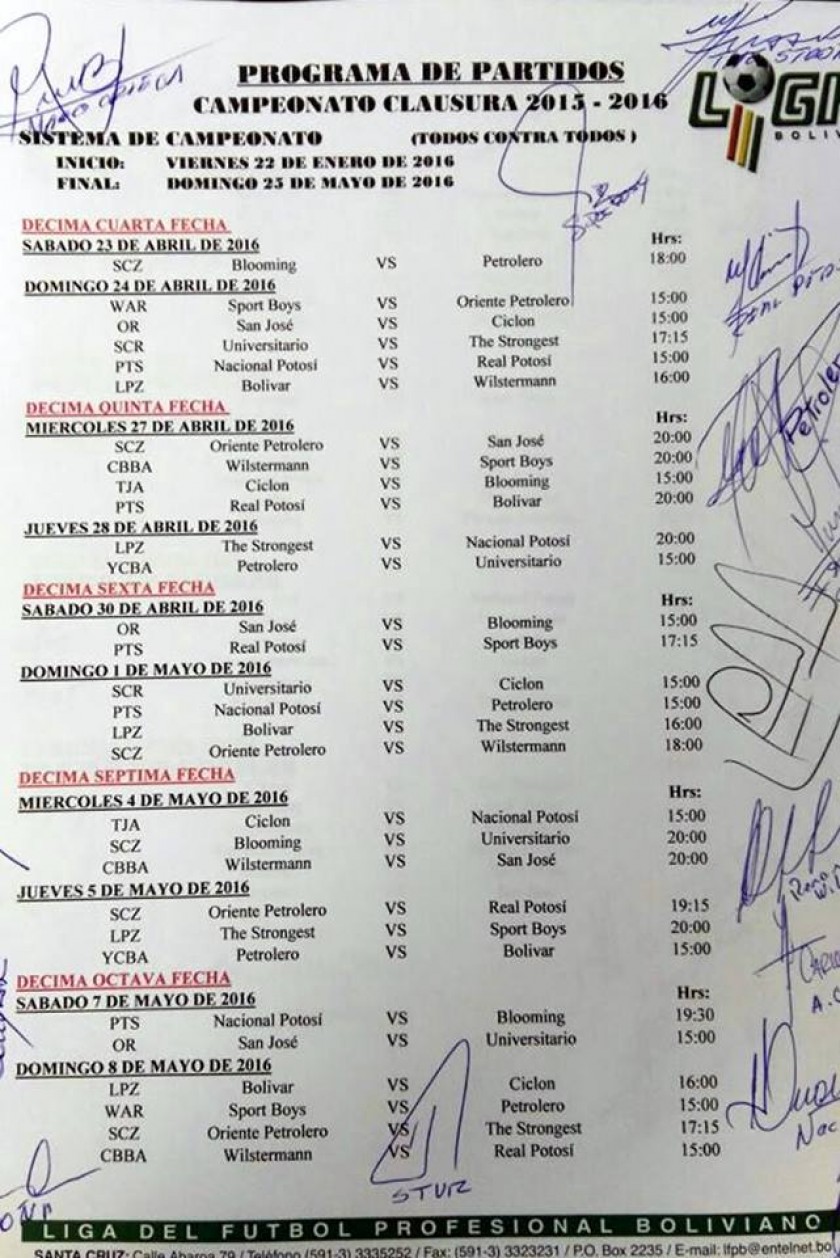 PROGRAMA DE PARTIDOS
CAMPEONATO CLAUSURA 2015 - 2016
SISTEMA DE CAMPEONATO (TODOS CONTRA TODOS )
INICIO: VIERNES 22 DE ENERO DE 2016
FINAL: DOMINGO 25 DE MAYO DE 2016
DECIMA CUARTA FECHA
SABADO 23 DE ABRIL DE 2016 Hrs:
SCZ Blooming VS Petrolero 18:00
DOMINGO 24 DE ABRIL DE 2016
WAR Sport Boys VS Oriente Petrolero 15:00
OR San José VS Ciclon 15:00
SCR Universitario VS The Strongest 17:15
PTS Nacional Potosí VS Real Potosí 15:00
LPZ Bolivar VS Wilstermann 16:00
DECIMA QUINTA FECHA
MIERCOLES 27 DE ABRIL DE 2016 Hrs:
SCZ Oriente Petrolero VS San José 20:00
CBBA Wilstermann VS Sport Boys 20:00
TJA Ciclon VS Blooming 15:00
PTS Real Potosí VS Bolivar 20:00
JUEVES 28 DE ABRIL DE 2016
LPZ The Strongest VS Nacional Potosí 20:00
YCBA Petrolero VS Universitario 15:00
DECIMA SEXTA FECHA
SABADO 30 DE ABRIL DE 2016 Hrs:
OR San José VS Blooming 15:00
PTS Real Potosí VS Sport Boys 17:15
DOMINGO 1 DE MAYO DE 2016
SCR Universitario VS Ciclon 15:00
PTS Nacional Potosí VS Petrolero 15:00
LPZ Bolivar VS The Strongest 16:00
SCZ Oriente Petrolero VS Wilstermann 18:00
DECIMA SEPTIMA FECHA
MIERCOLES 4 DE MAYO DE 2016 Hrs:
TJA Ciclon VS Nacional Potosí 15:00
SCZ Blooming VS Universitario 20:00
CBBA Wilstermann VS San José 20:00
JUEVES 5 DE MAYO DE 2016
SCZ Oriente Petrolero VS Real Potosí 19:15
LPZ The Strongest VS Sport Boys 20:00
YCBA Petrolero VS Bolivar 15:00
DECIMA OCTAVA FECHA
SABADO 7 DE MAYO DE 2016 Hrs:
PTS Nacional Potosí VS Blooming 19:30
OR San José VS Universitario 15:00
DOMINGO 8 DE MAYO DE 2016
LPZ Bolivar VS Ciclon 16:00
WAR Sport Boys VS Petrolero 15:00
SCZ Oriente Petrolero VS The Strongest 17:15
CBBA Wilstermann VS Real Potosí 15:00
LIGA DEL FUTBOL PROFESIONAL BOLIVIANO
SANTA CRUZ: Calle Abaroa 79 / Teléfono (591-3) 3335252 / Fax: (591-3) 3323231 / P.O. Box 2235 / E-mail: lfpb@entelnet.bo